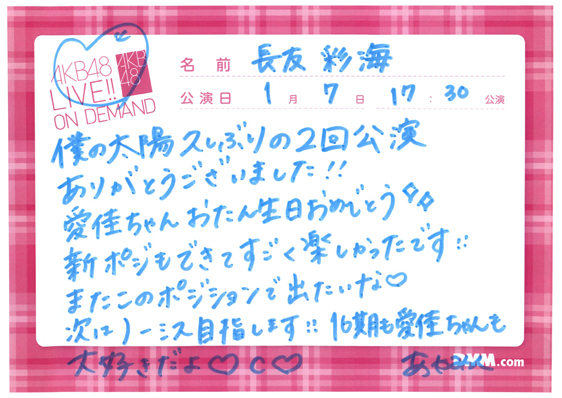 AKB48
LIVE!!
ON DEMAND
AKB
48
名前 長友 彩海
公演日 1月 7日 17:30 公演
僕の太陽久しぶりの2回公演
ありがとうございました!!
愛佳ちゃんおたん生日おめでとう
新ポジもできてすごく楽しかったです!!
またこのポジションで出たいな♡
次はノーミス目指します!! 16期も愛佳ちゃんも
大好きだよ♡ C♡
.com